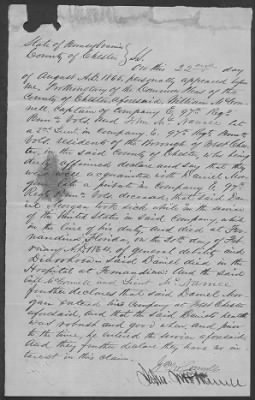 State of Pennsylvania
County of Chester } SS.
On this 22nd day
of August A.D. 1865, personally appeared before
me, Prothonotary of the Common Pleas of the
County of Chester aforesaid, William McConnell,
Captain of Company E. 97th Regt
Penn Vols. and John McNamee late
a 2nd Lieut. in Company E. 97th Regt Penn
Vols. residents of the Borough of West Chester,
in the said County of Chester, who being
duly affirmed declare and say that they
were well acquainted with Daniel Morgan
late a private in Company E. 97th
Regt Penn Vols deceased, that said Daniel
Morgan took sick while in the service
of the United States in said Company while
in the line of his duty and died at Fernandina,
Florida, on the day of February
A.D. 1864, of general debility and
Diarrhoea. Said Daniel died in the
Hospital at Fernandina. And the said
Capt McConnell and Lieut McNamee
further declare that said Daniel Morgan
entered said Company at West Chester
aforesaid, and that the said Daniel's health
was robust and good when, and prior
to the time, he entered the service aforesaid.
And they further declare they have no interest
in this claim.
McConnell
John